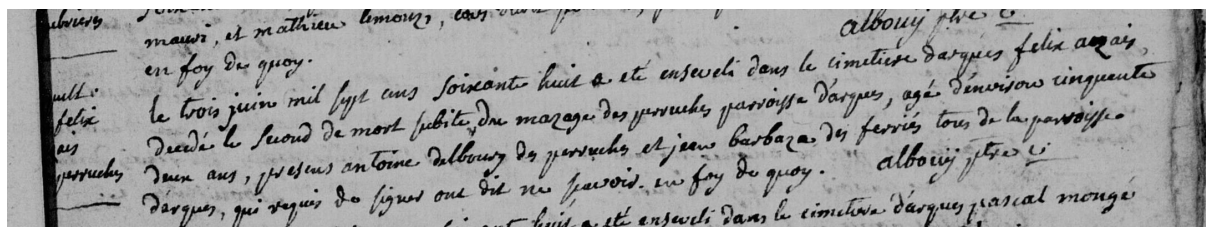 mauri, et mathieu limouzi,
albouÿ ptre
en foy de quoy.
le trois juin mil sept cens soixante huit a eté enseveli dans le cimetiere d'arques felix auzais,
felix
decedé le second de mort subite, du mazage des perruches parroisse d'arques, agé d'environ cinquente
ais
deux ans, presens antoine delbourg des perruches et jean barbaza des ferriés tous de la parroisse
perruches
d'arques, qui requis de signer ont dit ne sçavoir. en foy de quoy. albouÿ ptre
huit a eté enseveli dans le cimetiere d'arques pascal mongé